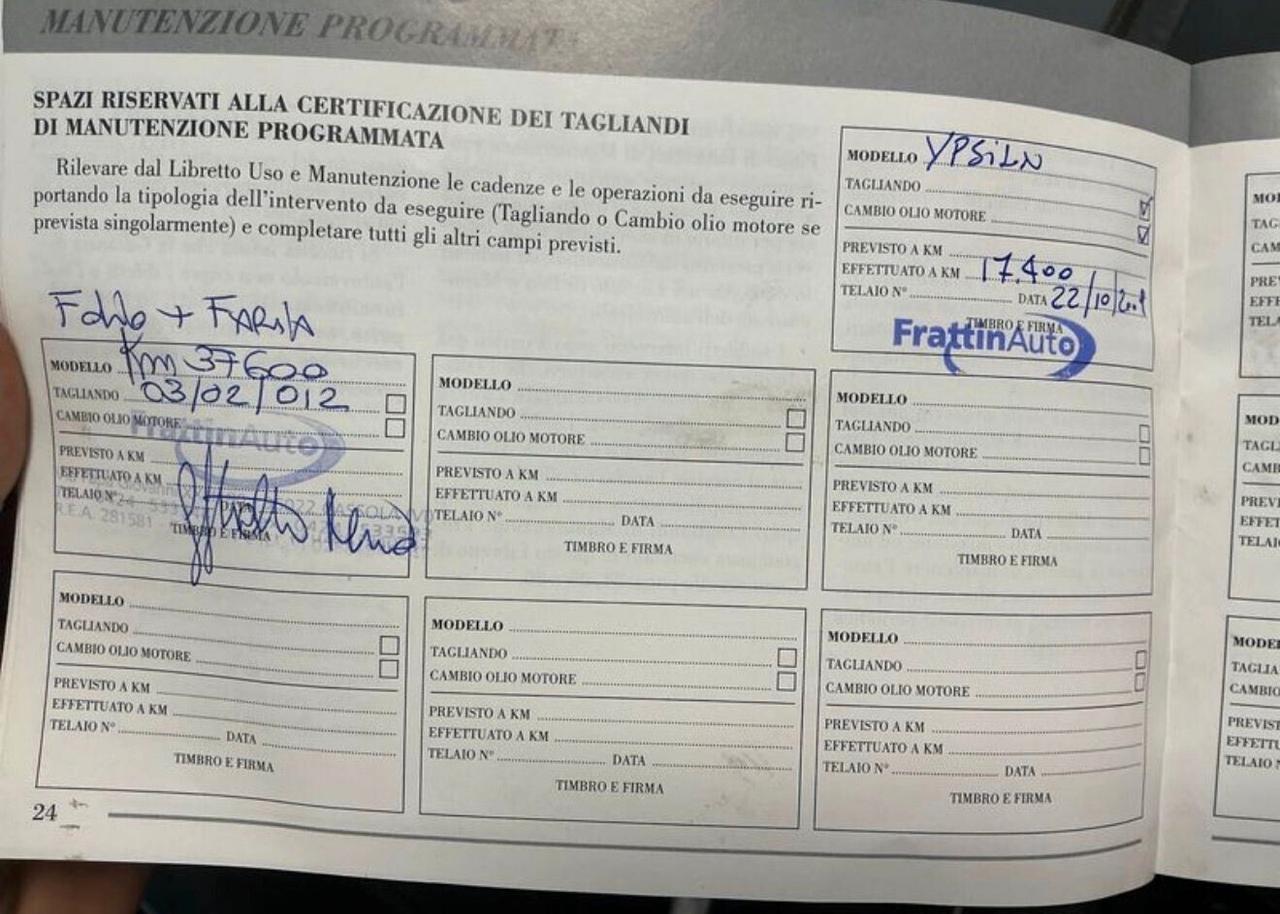 MANUTENZIONE PROGRAMMATA
SPAZI RISERVATI ALLA CERTIFICAZIONE DEI TAGLIANDI
DI MANUTENZIONE PROGRAMMATA
Rilevare dal Libretto Uso e Manutenzione le cadenze e le operazioni da eseguire ri-
portando la tipologia dell'intervento da eseguire (Tagliando o Cambio olio motore se
prevista singolarmente) e completare tutti gli altri campi previsti.
MODELLO YPSiLN
TAGLIANDO
CAMBIO OLIO MOTORE
PREVISTO A KM
EFFETTUATO A KM 17.400
TELAIO N° DATA 22/10/
TIMBRO E FIRMA
FrattinAuto
+ FARMA
MODELLO Km 37600
TAGLIANDO 03/02/012
CAMBIO OLIO MOTORE
FrattinAuto
PREVISTO A KM
EFFETTUATO A KM
TELAIO N° DATA
R.E.A. 281581
TIMBRO E FIRMA
MODELLO
TAGLIANDO
CAMBIO OLIO MOTORE
PREVISTO A KM
EFFETTUATO A KM
TELAIO N° DATA
TIMBRO E FIRMA
MODELLO
TAGLIANDO
CAMBIO OLIO MOTORE
PREVISTO A KM
EFFETTUATO A KM
TELAIO N° DATA
TIMBRO E FIRMA
MODELLO
TAGLIANDO
CAMBIO OLIO MOTORE
PREVISTO A KM
EFFETTUATO A KM
TELAIO N° DATA
TIMBRO E FIRMA
MODELLO
TAGLIANDO
CAMBIO OLIO MOTORE
PREVISTO A KM
EFFETTUATO A KM
TELAIO N° DATA
TIMBRO E FIRMA
MODELLO
TAGLIANDO
CAMBIO OLIO MOTORE
PREVISTO A KM
EFFETTUATO A KM
TELAIO N° DATA
TIMBRO E FIRMA
24